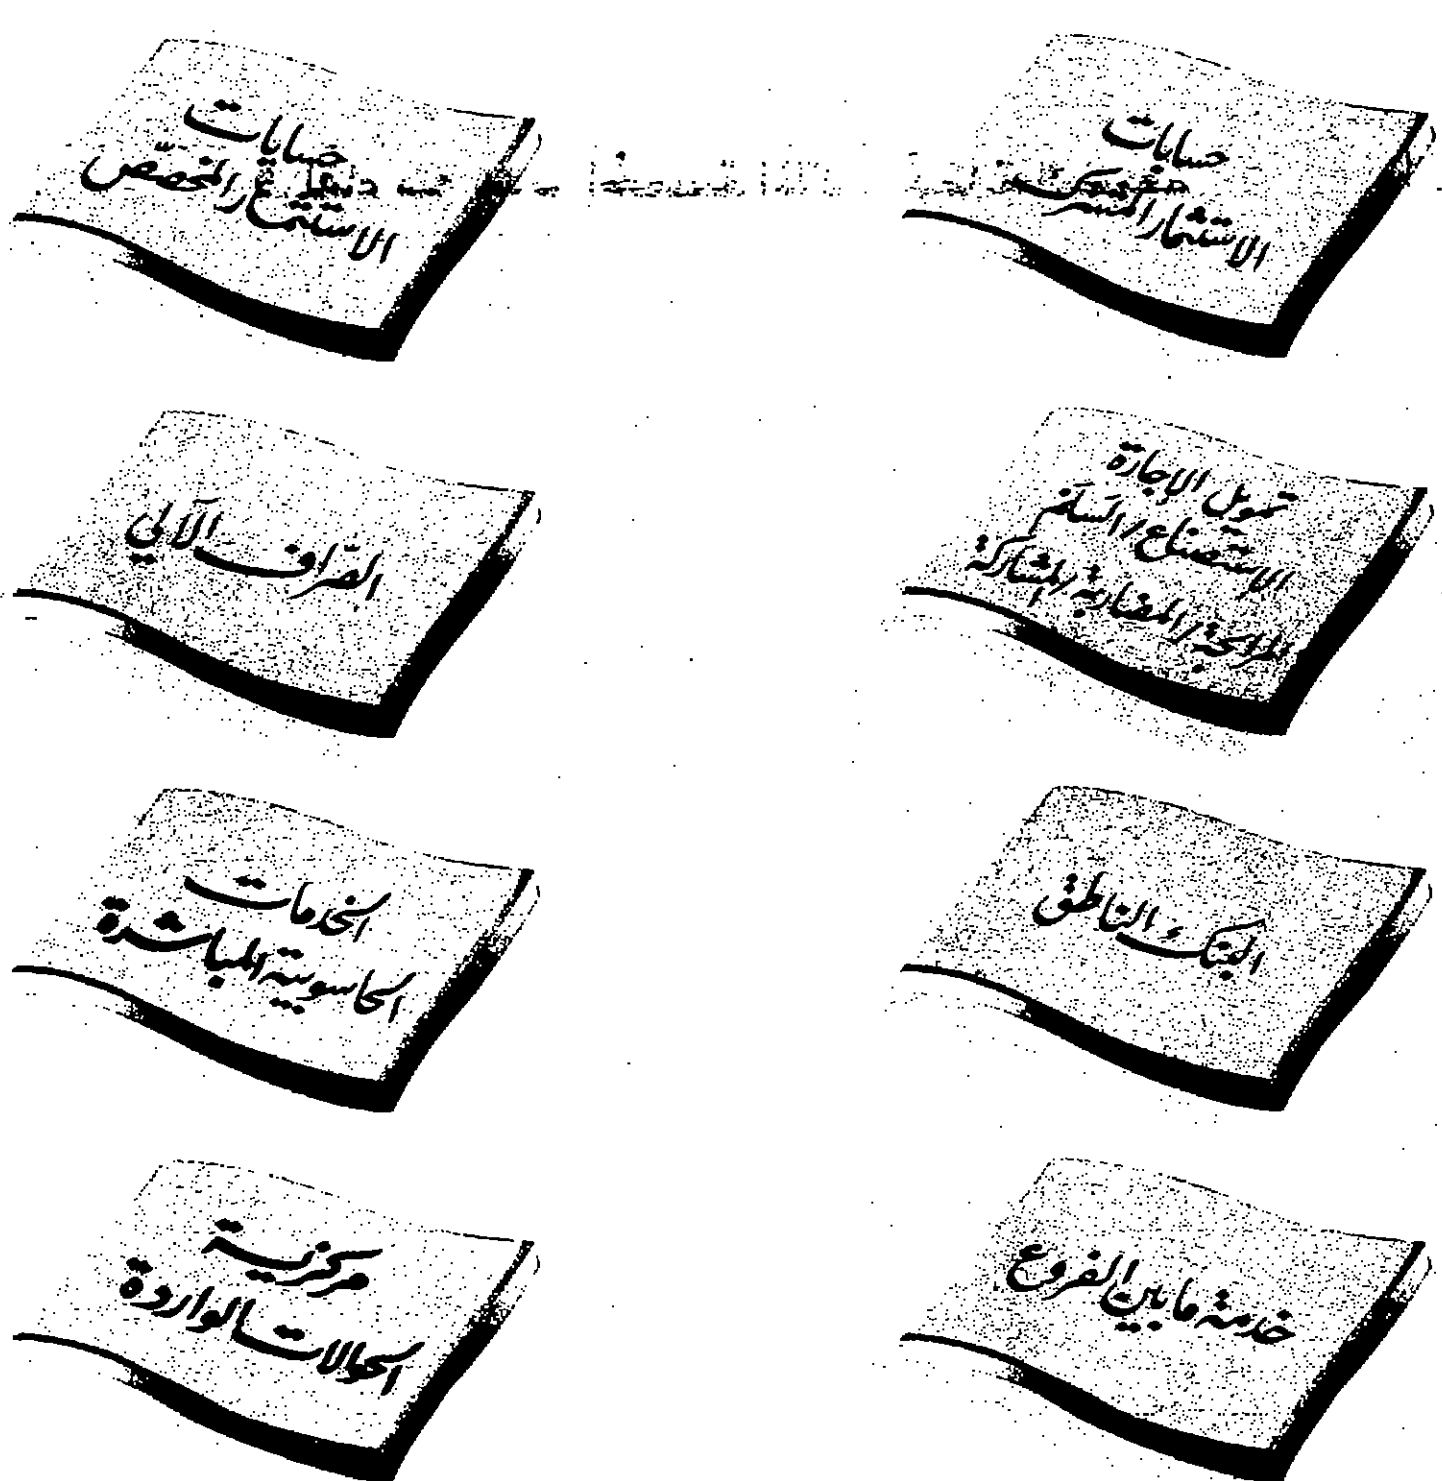 حسابات
الاستثمار المشترك
حسابات
الاستثمار المخصّص
تمويل الإجارة
الاستصناع / السلم
المرابحة / المضاربة / المشاركة
الصّراف الآلي
البنك الناطق
الخدمات
الحاسوبية المباشرة
خدمة ما بين الفروع
مركزية
الحوالات الواردة